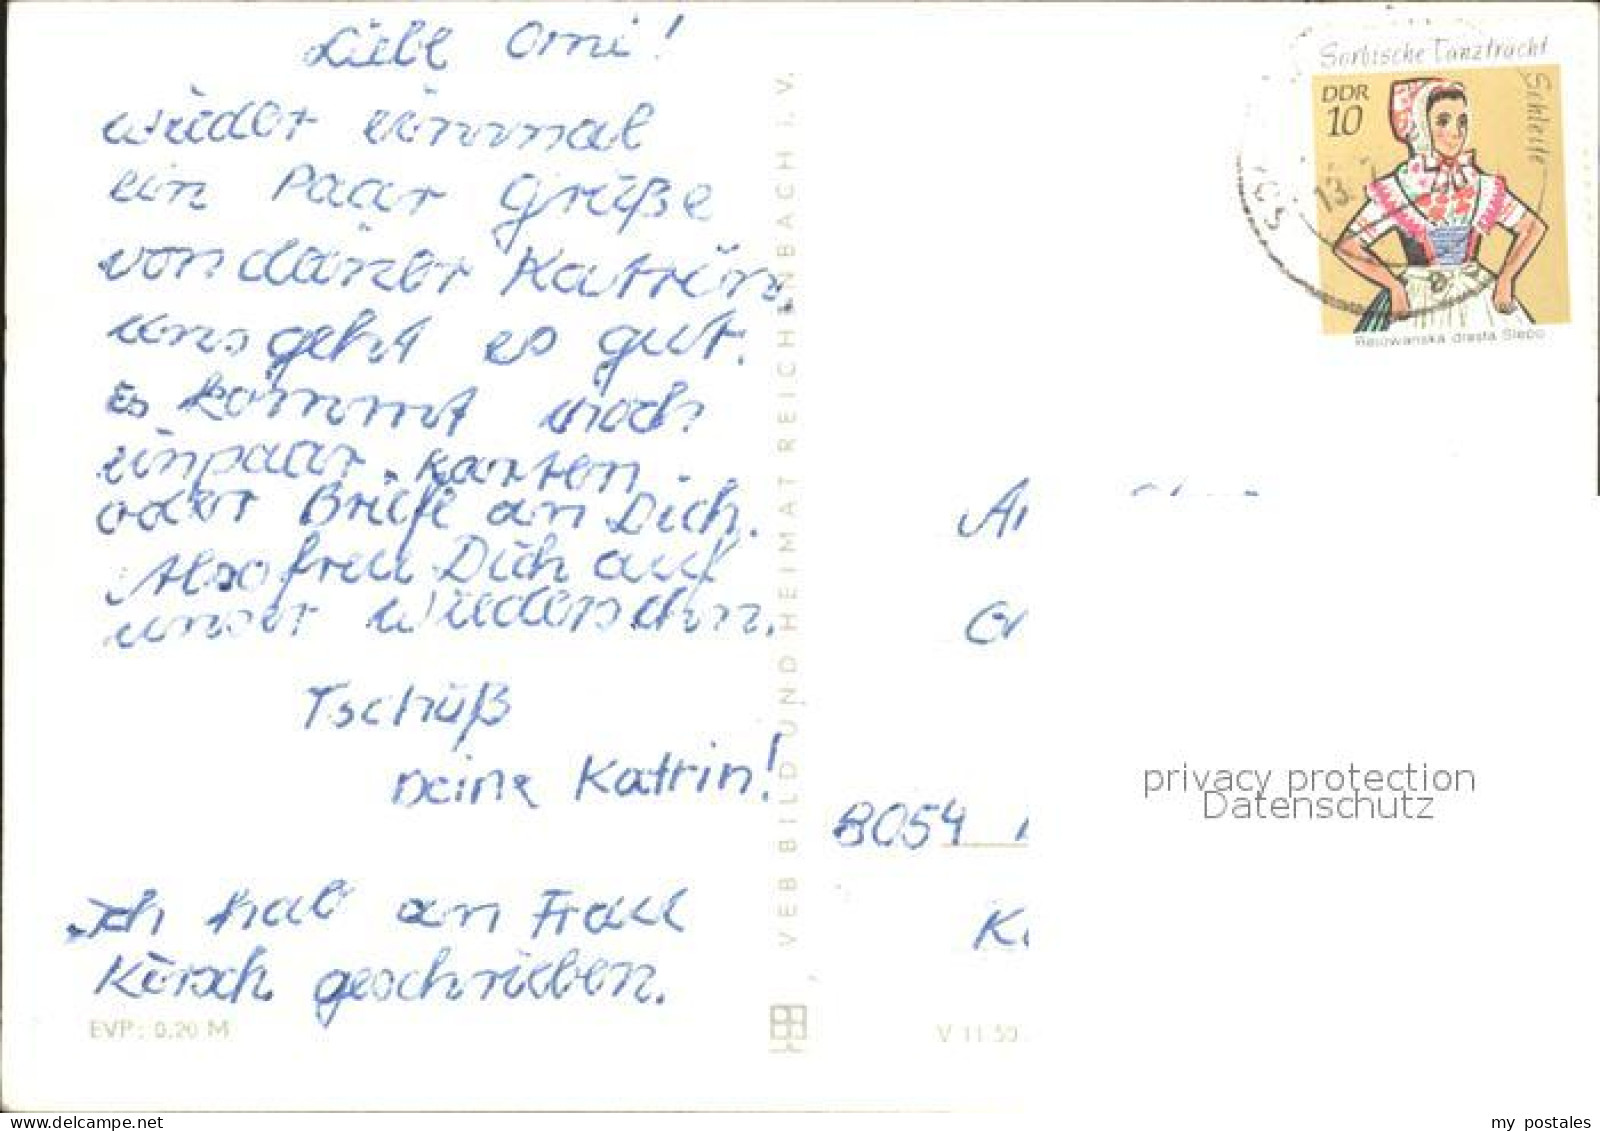 Liebe Omi!
wieder einmal
ein Paar Grüße
von deiner Katrin,
uns geht es gut.
Es kommt noch
ein paar Karten
oder Briefe an Dich.
Also freu Dich auf
unser Wiedersehn.
Tschüß
Deine Katrin!
Ich hab an Frau
Kirsch geschrieben.
EVP: 0,20 M
VEB BILD UND HEIMAT REICHENBACH I. V.
Sorbische Tanztracht
Schleife
DDR
10
Rejowanska drasta Slepo
13.
8054
V 11 50
privacy protection
Datenschutz
ansichtskartenversand.com
my postales